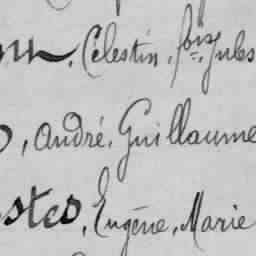 , Célestin, fois Jules
, André, Guillaume
stes, Eugène, Marie